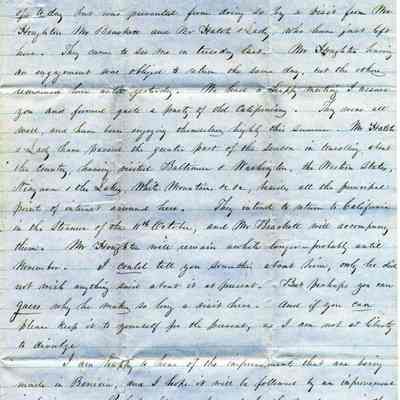 to day but was prevented from doing so by a visit from Mr
Houghton Mr Brackett and Mr Hatch & Lady, who have just left
here. They came to see me on tuesday last. Mr Houghton having
an engagement was obliged to return the same day, but the others
remained here until yesterday. We had a happy meeting I assure
you and formed quite a party of old Californians. They were all
well, and have been enjoying themselves highly this summer. Mr Hatch
& Lady have passed the greater part of the season in travelling about
the Country, having visited Baltimore & Washington, the Western States,
Niagara & the Lakes, White Mountains &c &c, besides all the principal
points of interest around here. They intend to return to California
in the Steamer of the 11th October, and Mr Brackett will accompany
them. Mr Houghton will remain awhile longer - probably until
November. I could tell you something about him, only he did
not wish anything said about it at present. But perhaps you can
guess why he makes so long a visit here. And if you can
please keep it to yourself for the present, as I am not at liberty
to divulge.
I am happy to hear of the improvements that are being
made in Benicia, and I hope it will be followed by an improvement